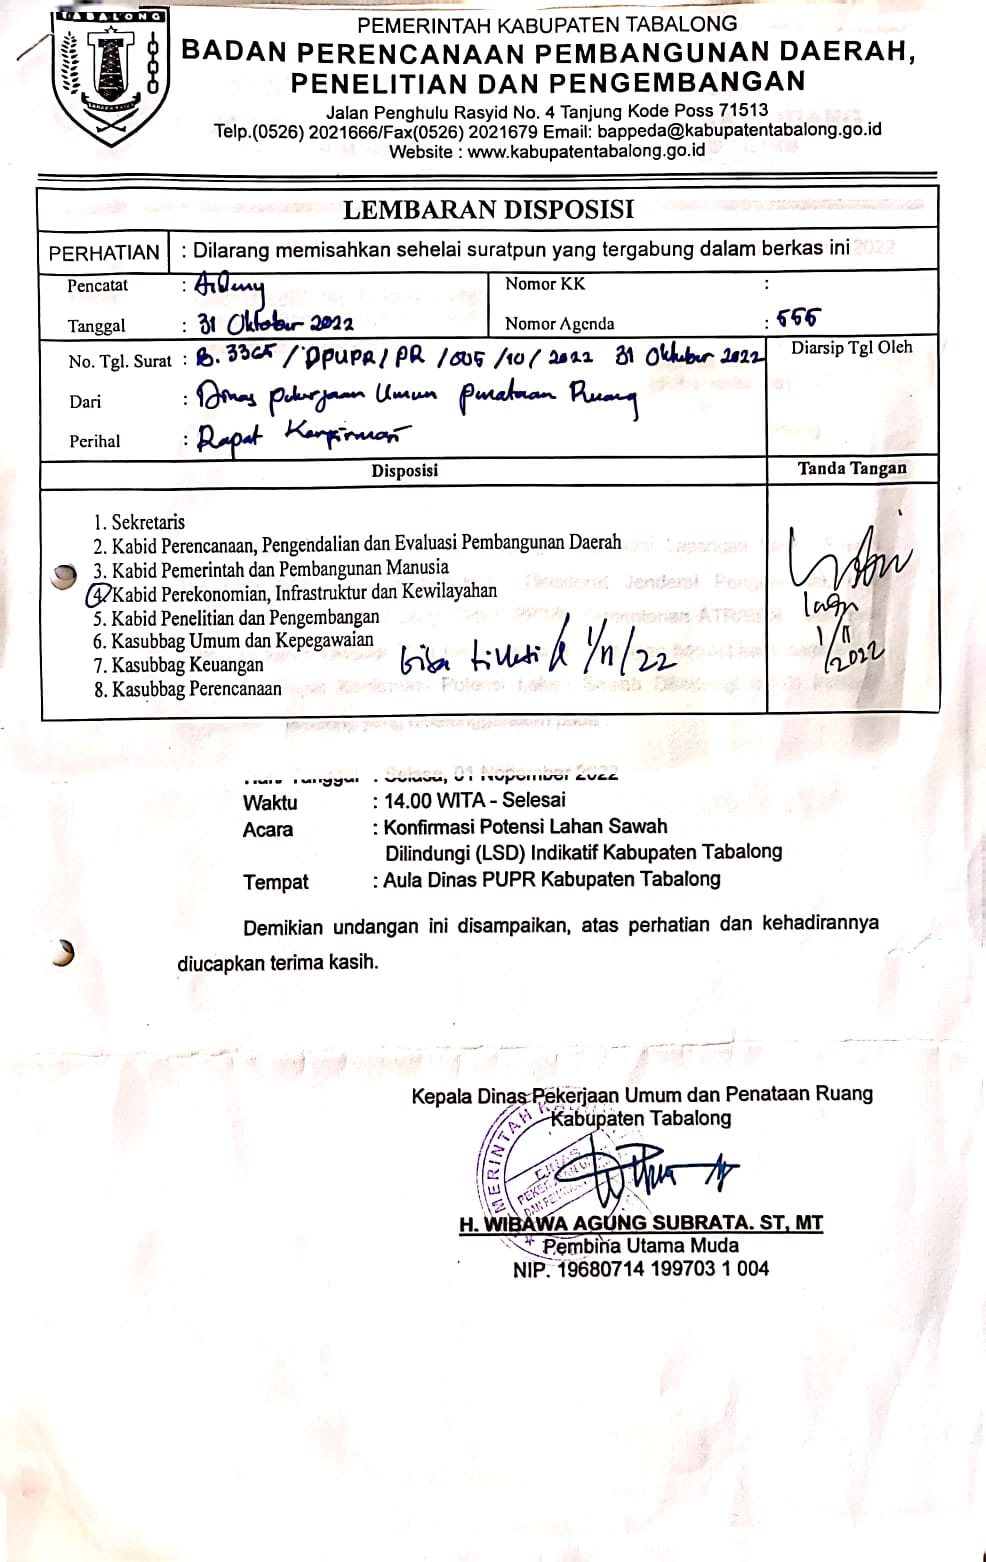 TABALONG
PEMERINTAH KABUPATEN TABALONG
BADAN PERENCANAAN PEMBANGUNAN DAERAH,
PENELITIAN DAN PENGEMBANGAN
Jalan Penghulu Rasyid No. 4 Tanjung Kode Poss 71513
Telp.(0526) 2021666/Fax(0526) 2021679 Email: bappeda@kabupatentabalong.go.id
Website : www.kabupatentabalong.go.id
LEMBARAN DISPOSISI
PERHATIAN : Dilarang memisahkan sehelai suratpun yang tergabung dalam berkas ini
Pencatat :
Nomor KK :
Tanggal : 31 Oktober 2022
Nomor Agenda : 555
No. Tgl. Surat : B. /DPUPR/PR/005/10/2022 31 Oktober 2022
Diarsip Tgl Oleh
Dari : Dinas Pekerjaan Umum Penataan Ruang
Perihal : Rapat Konfirmasi
Disposisi
Tanda Tangan
1. Sekretaris
2. Kabid Perencanaan, Pengendalian dan Evaluasi Pembangunan Daerah
3. Kabid Pemerintah dan Pembangunan Manusia
4. Kabid Perekonomian, Infrastruktur dan Kewilayahan
5. Kabid Penelitian dan Pengembangan
6. Kasubbag Umum dan Kepegawaian
7. Kasubbag Keuangan
8. Kasubbag Perencanaan
1/11/22
1/11
/2022
: Selasa, 01 Nopember 2022
Waktu : 14.00 WITA - Selesai
Acara : Konfirmasi Potensi Lahan Sawah
Dilindungi (LSD) Indikatif Kabupaten Tabalong
Tempat : Aula Dinas PUPR Kabupaten Tabalong
Demikian undangan ini disampaikan, atas perhatian dan kehadirannya
diucapkan terima kasih.
Kepala Dinas Pekerjaan Umum dan Penataan Ruang
Kabupaten Tabalong
H. WIBAWA AGUNG SUBRATA. ST, MT
Pembina Utama Muda
NIP. 19680714 199703 1 004